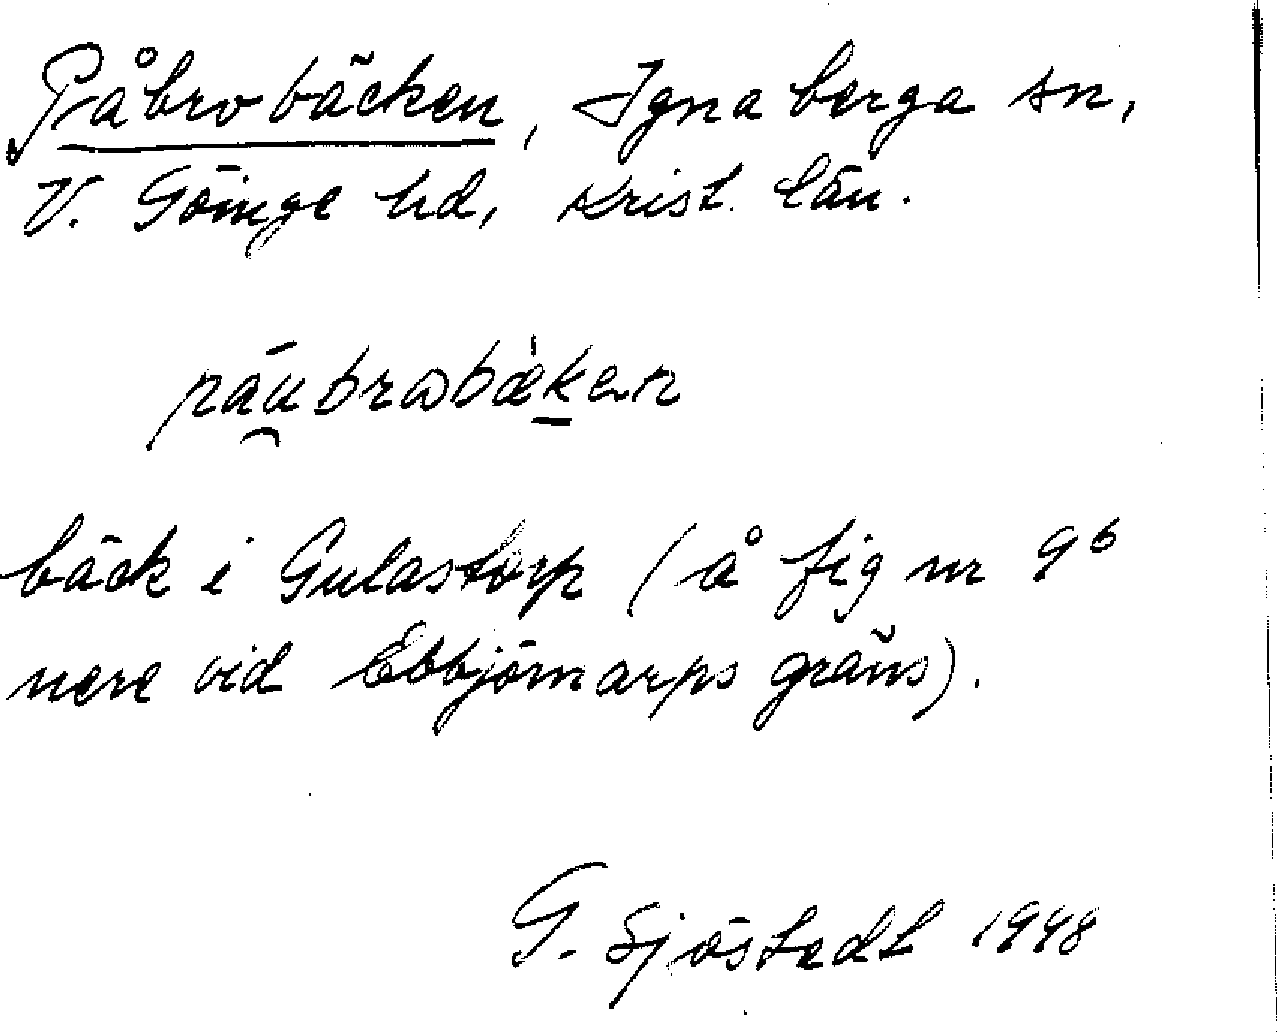 Påbrobäcken, Ignaberga sn,
V. Göinge hd, Krist. län.
pā́u̯brωbæ̀ḵen
bäck i Gulastorp (å fig nr 96
nere vid Ebbjörnarps gräns).
G. Sjöstedt 1948